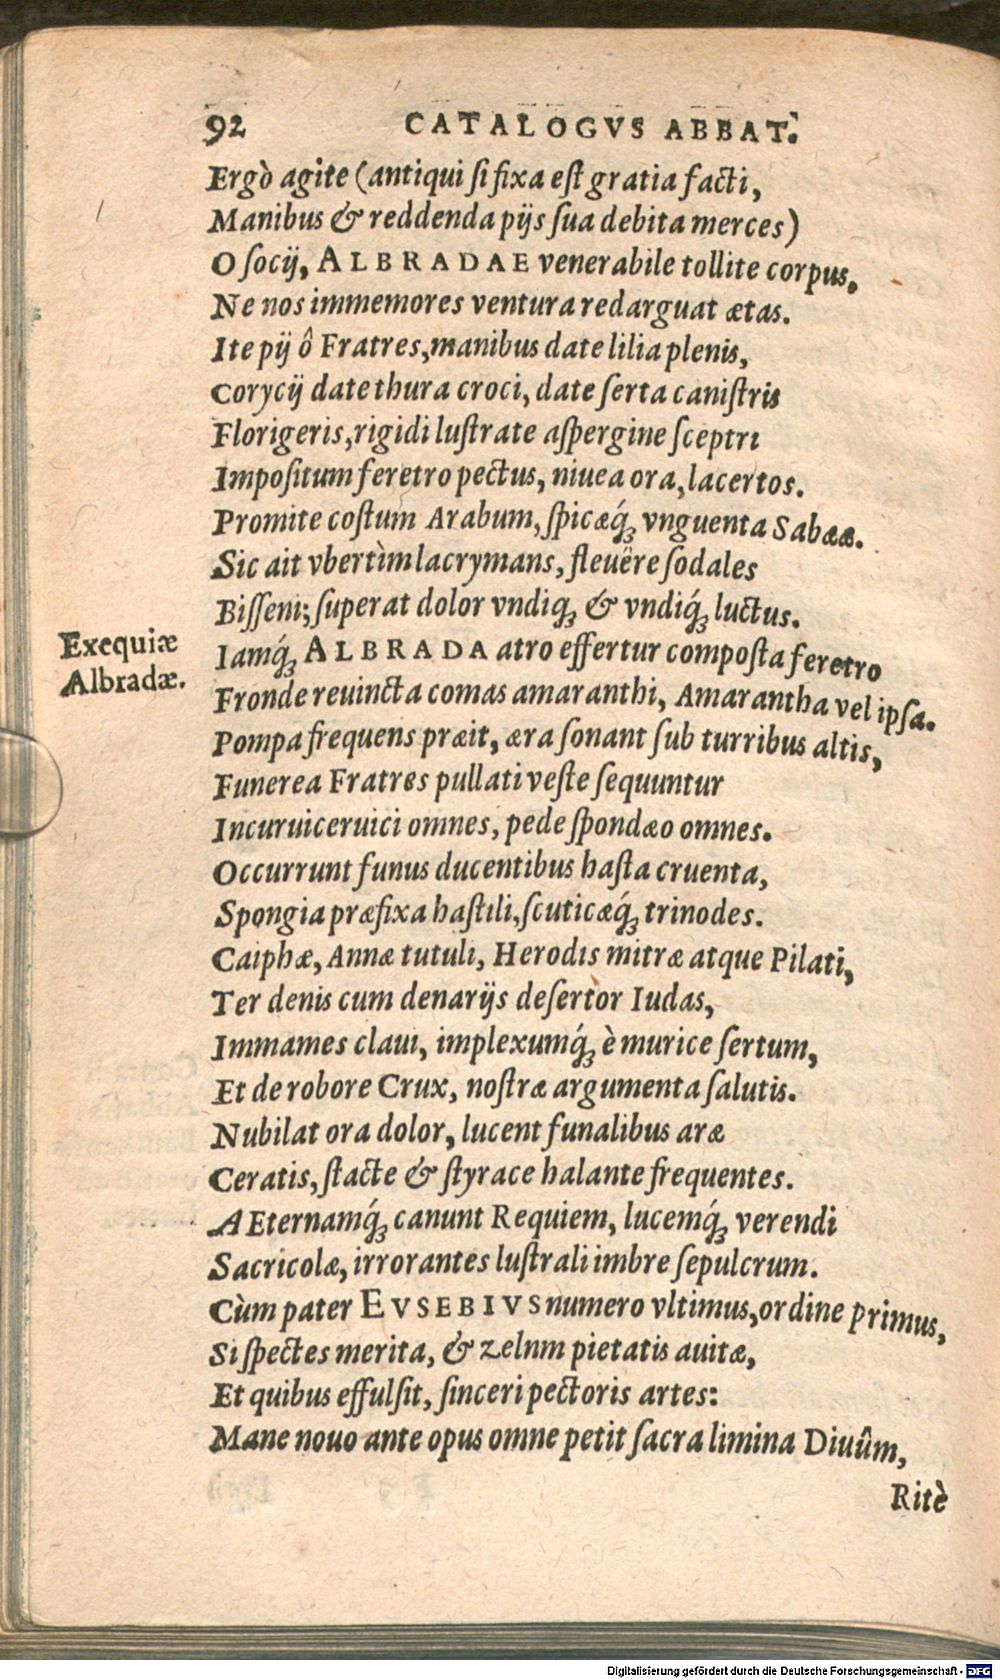 92 CATALOGVS ABBAT.
Ergò agite (antiqui si fixa est gratia facti,
Manibus & reddenda pijs sua debita merces)
O socij, ALBRADAE venerabile tollite corpus,
Ne nos immemores ventura redarguat ætas.
Ite pij ô Fratres, manibus date lilia plenis,
Corycij date thura croci, date serta canistris
Florigeris, rigidi lustrate aspergine sceptri
Impositum feretro pectus, niuea ora, lacertos.
Promite costum Arabum, spicæq́; vnguenta Sabææ.
Sic ait vbertìm lacrymans, fleuêre sodales
Bisseni; superat dolor vndiq; & vndiq́; luctus.
Exequiæ
Albradæ.
Iamq́; ALBRADA atro effertur composta feretro
Fronde reuincta comas amaranthi, Amarantha vel ipsa.
Pompa frequens præit, æra sonant sub turribus altis,
Funerea Fratres pullati veste sequuntur
Incuruiceruici omnes, pede spondæo omnes.
Occurrunt funus ducentibus hasta cruenta,
Spongia præfixa hastili, scuticæq́; trinodes.
Caiphæ, Annæ tutuli, Herodis mitræ atque Pilati,
Ter denis cum denarijs desertor Iudas,
Immames claui, implexumq́; è murice sertum,
Et de robore Crux, nostræ argumenta salutis.
Nubilat ora dolor, lucent funalibus aræ
Ceratis, stacte & styrace halante frequentes.
AEternamq́; canunt Requiem, lucemq́; verendi
Sacricolæ, irrorantes lustrali imbre sepulcrum.
Cùm pater EVSEBIVS numero vltimus, ordine primus,
Si spectes merita, & zelnm pietatis auitæ,
Et quibus effulsit, sinceri pectoris artes:
Mane nouo ante opus omne petit sacra limina Diuûm,
Ritè
Digitalisierung gefördert durch die Deutsche Forschungsgemeinschaft - DFG